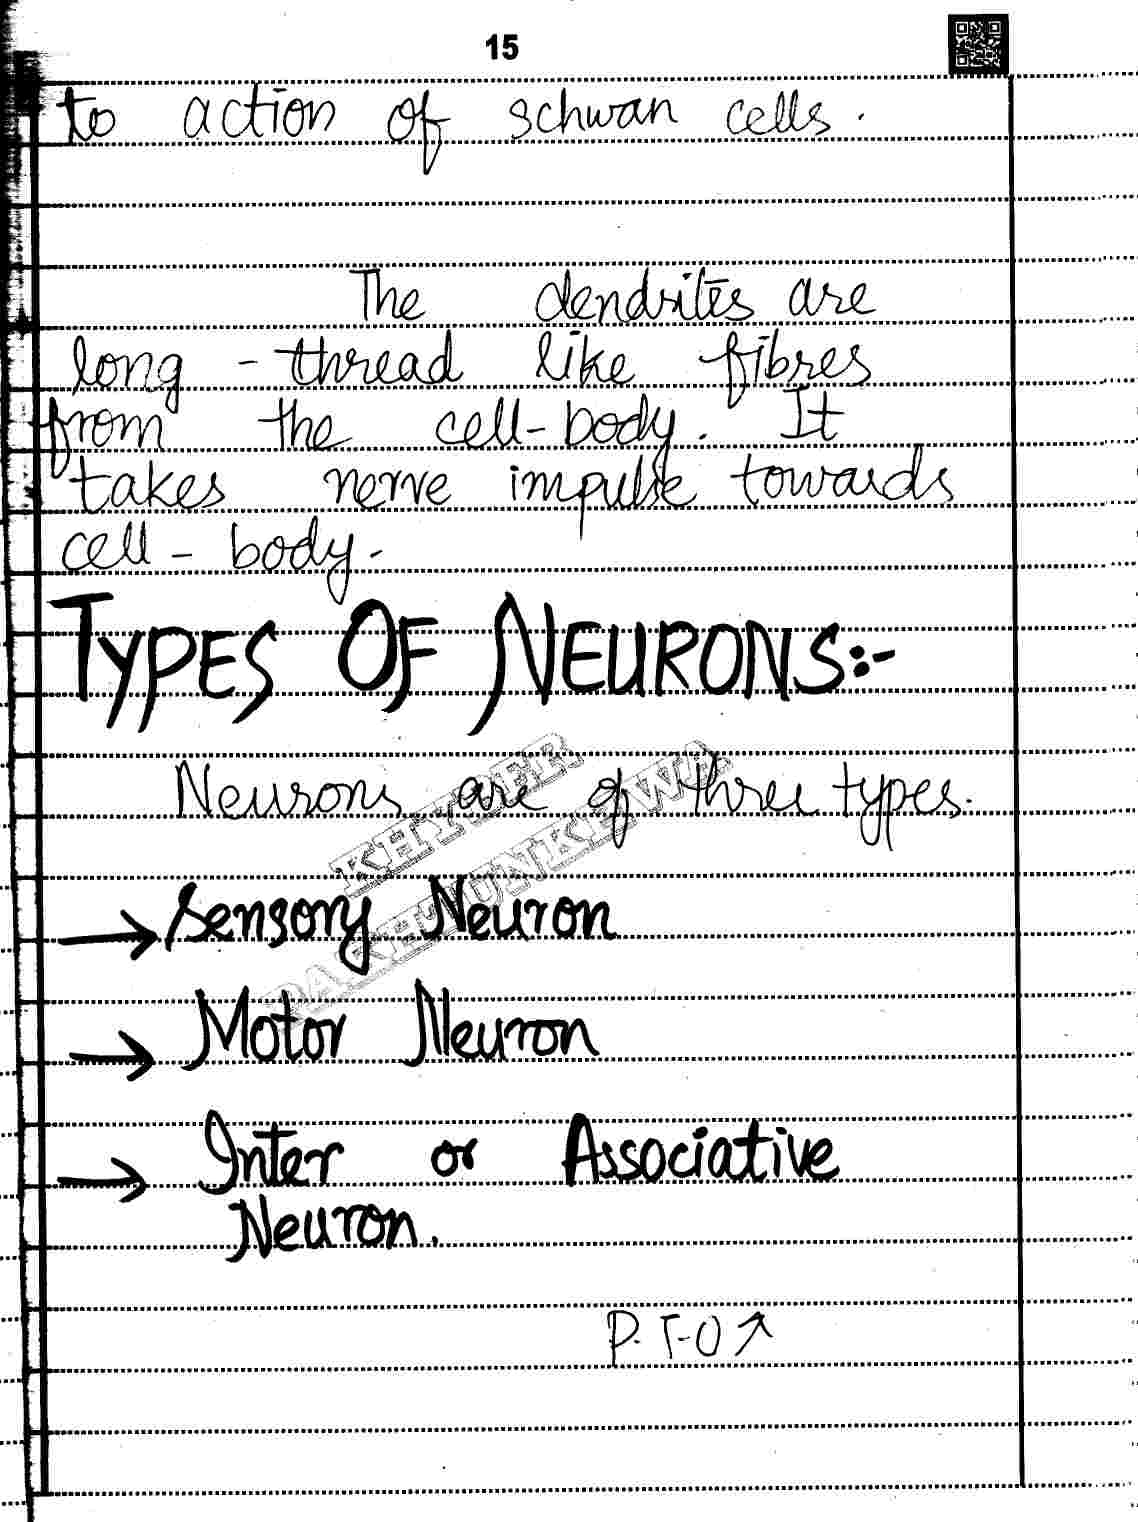 15
to action of schwan cells.
The dendrites are
long - thread like fibres
from the cell-body. It
takes nerve impulse towards
cell - body.
TYPES OF NEURONS:-
Neurons are of three types.
KHYBER
PAKHTUNKHWA
→ Sensory Neuron
→ Motor Neuron
→ Inter or Associative
Neuron.
P.T-O↗